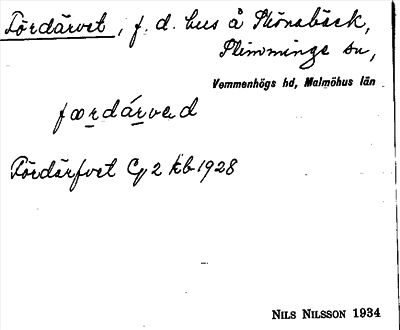 Fördärvet, f. d. hus å Skönabäck,
Slimminge sn,
Vemmenhögs hd, Malmöhus län
færdárvad
Fördärfvet Cg 2 kb 1928
NILS NILSSON 1934